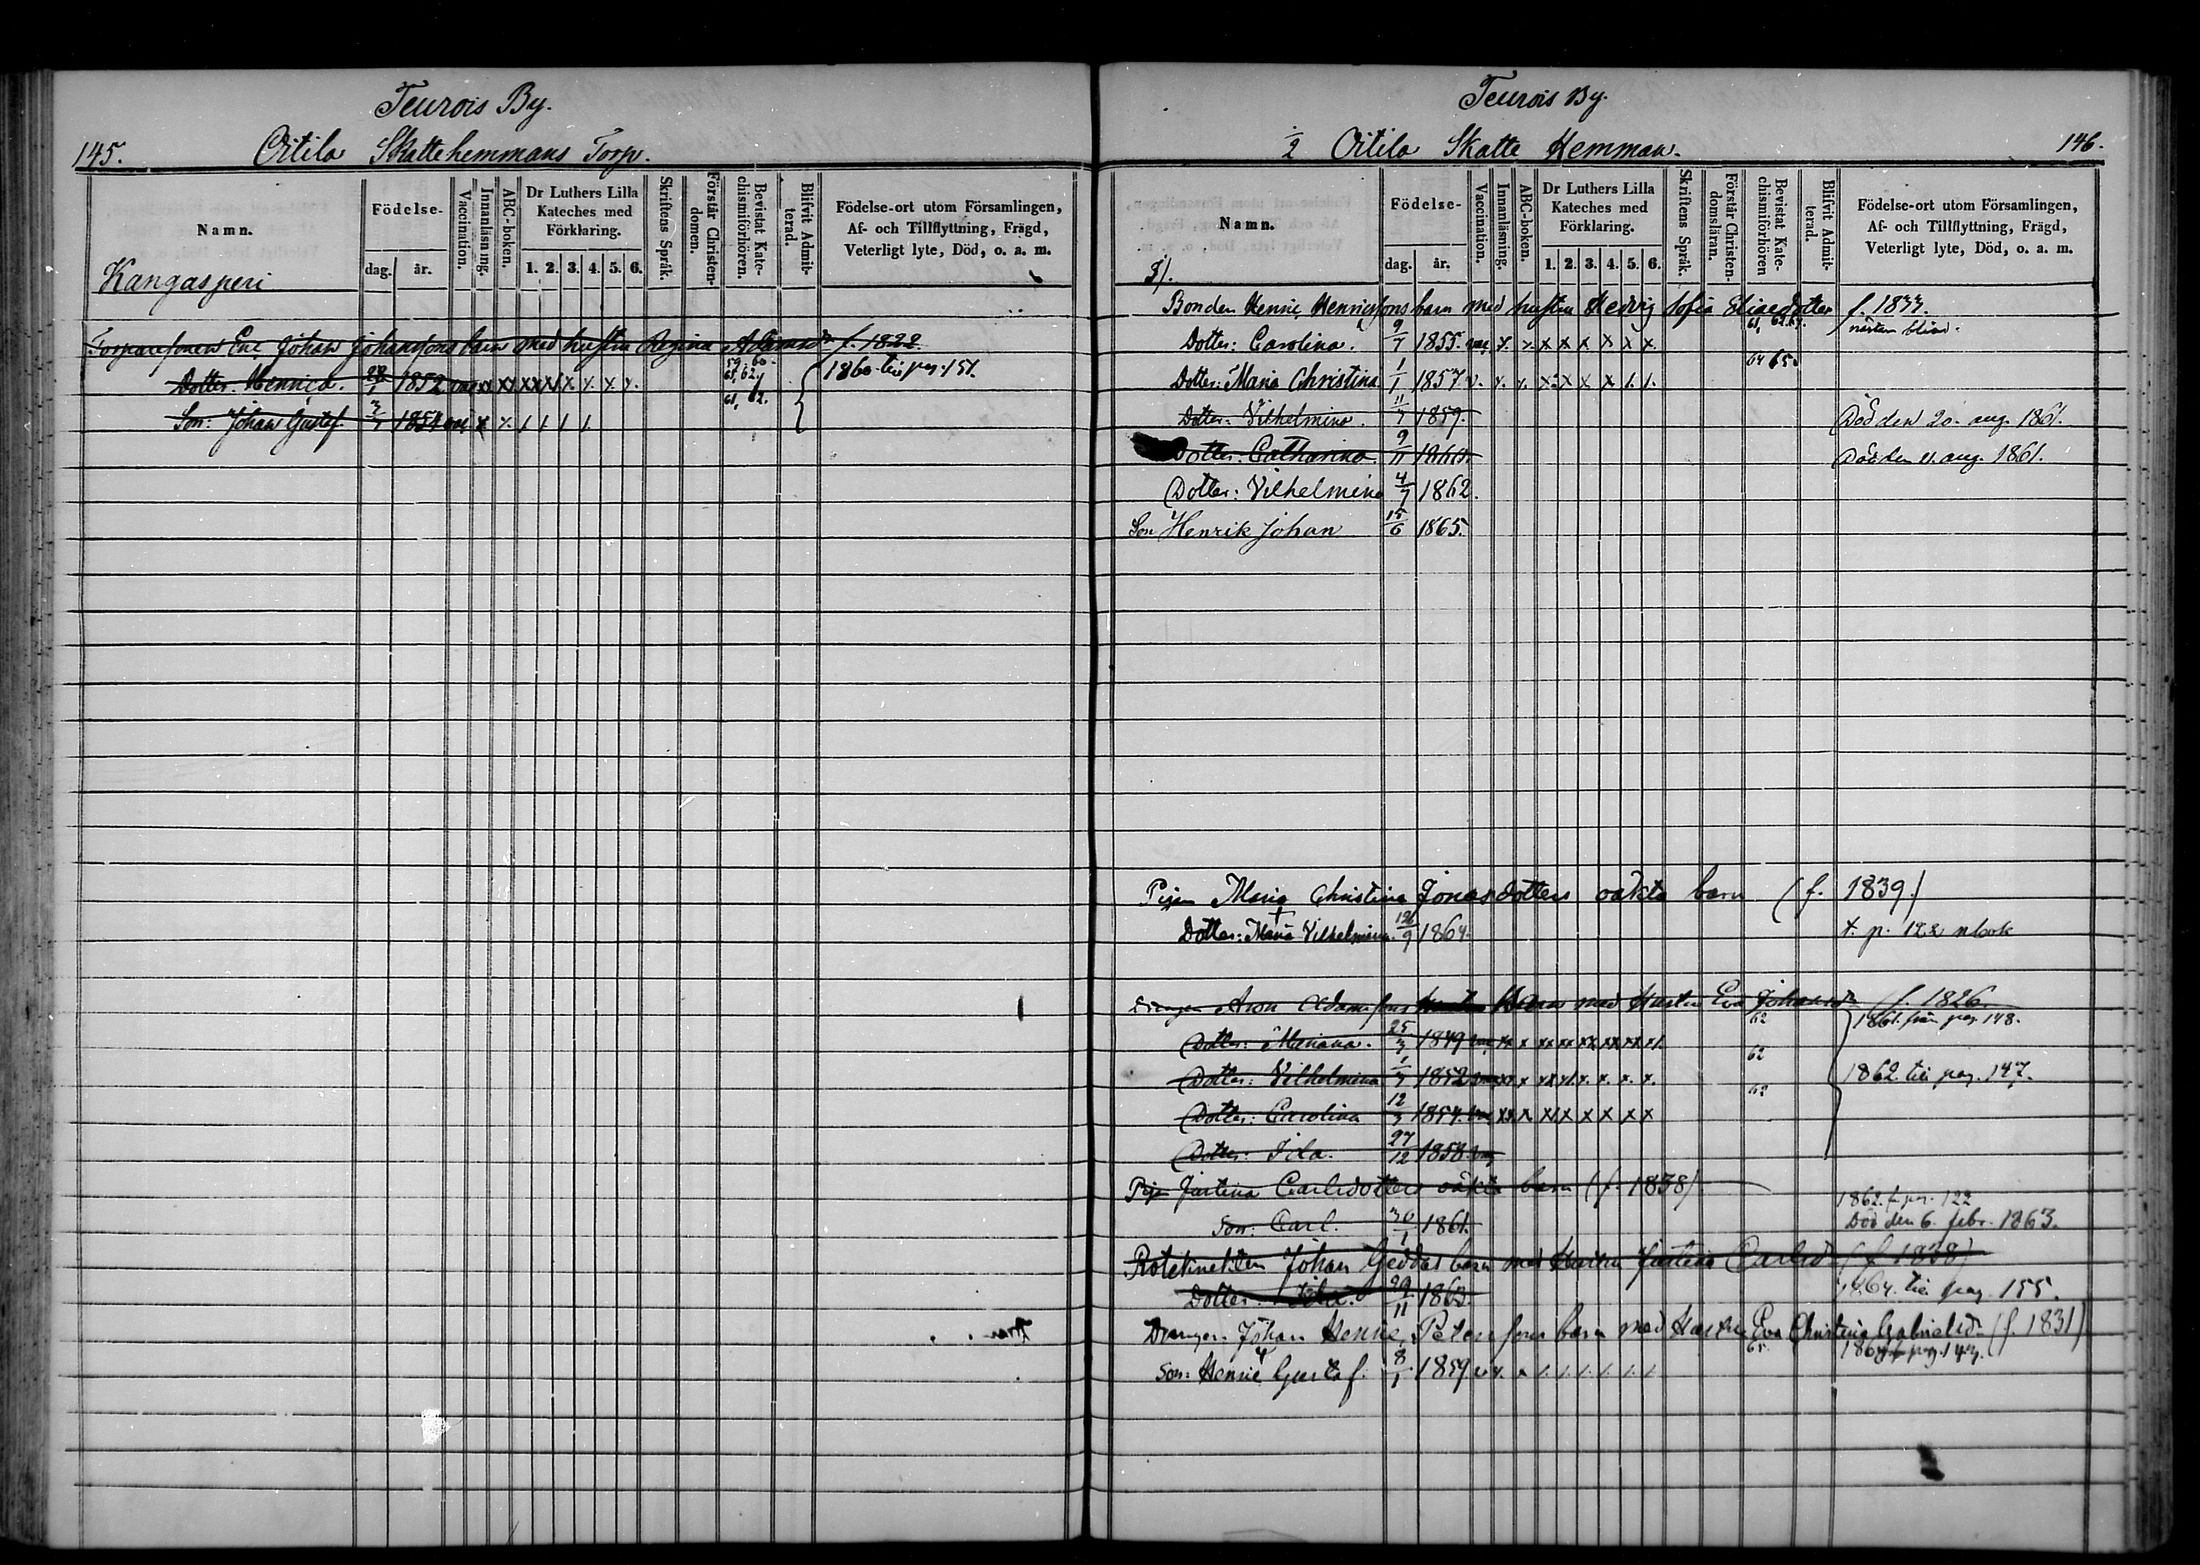 Teurois By.
145. Oitila Skattehemmans Torp.
Namn.
Födelse-
dag. år.
Vaccination.
Innanläsning.
ABC-boken.
Dr Luthers Lilla Kateches med Förklaring.
1. 2. 3. 4. 5. 6.
Skriftens Språk.
Förstår Christendomen.
Bevistat Katechismiförhören.
Blifvit Admitterad.
Födelse-ort utom Församlingen,
Af- och Tillflyttning, Frägd,
Veterligt lyte, Död, o. a. m.
Kangasperi
Johan Johanssons barn med hustru Regina f. 1822
59, 60. 61, 62.
Dotter: Henrica. 28/1 1852 1860 till pag. 151.
61, 62.
Son: Johan Gustaf. 3/7 1854
Teurois By.
1/2 Oitila Skatte Hemman. 146.
Namn.
Födelse-
dag. år.
Vaccination.
Innanläsning.
ABC-boken.
Dr Luthers Lilla Kateches med Förklaring.
1. 2. 3. 4. 5. 6.
Skriftens Språk.
Förstår Christendomsläran.
Bevistat Katechismiförhören
Blifvit Admitterad.
Födelse-ort utom Församlingen,
Af- och Tillflyttning, Frägd,
Veterligt lyte, Död, o. a. m.
Bonden Henric Henricssons barn med hustru Hedvig Sofia Eliaedotter f. 1833.
Dotter: Carolina. 9/7 1855. nästan blind.
64 65.
Dotter: Maria Christina 1/1 1857.
Dotter: Vilhelmina. 11/7 1859. Död den 20. aug. 1861.
Dotter: Catharina. 9/11 Död den 11. aug. 1861.
Dotter: Vilhelmina 4/7 1862.
Son Henrik Johan 15/6 1865.
Pigan Maria Christina Jonasdotters oäkta barn (f. 1839)
Dotter: Maria Vilhelmina. 9 1864. p. 122 nbok
Drengen Aron Adamssons barn med Hustru Eva Johansd. (f. 1826.
62 1861. från pag. 148.
Dotter: Mariana. 25/3 1849
62
Dotter: Vilhelmina 1/3 1852 1862. till pag. 147.
62
Dotter: Carolina 12/3 1854.
Dotter: Ida. 27/12 1858.
Pigan Justina Carlsdotters oäkta barn (f. 1838)
1862. f. pag. 122
Son: Carl. 30/1 1861. Död den 6. febr. 1863.
Johan Geddas barn med Hustru Justina Carlsd. (f. 1838)
Dotter: Ida. 29/11 1863. 1864. till pag. 155.
Drengen Johan Henric Petersons barn med Hustru Eva Christina Gabrielsd. (f. 1831)
65
Son: Henric Gustaf. 8/1 1859